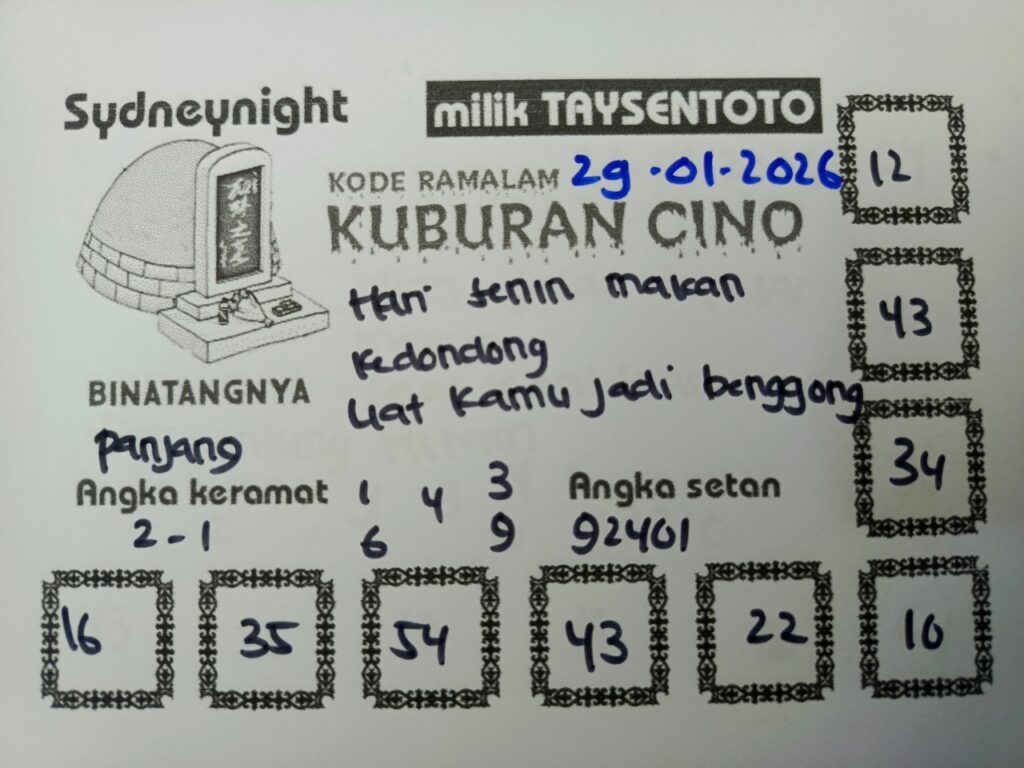 Sydneynight
milik TAYSENTOTO
KODE RAMALAM 29-01-2026
KUBURAN CINO
12
Hari senin makan
kedondong
liat kamu jadi benggong
43
BINATANGNYA
panjang
34
Angka keramat
2-1
1 4 3
6 9
Angka setan
92401
16 35 54 43 22 10